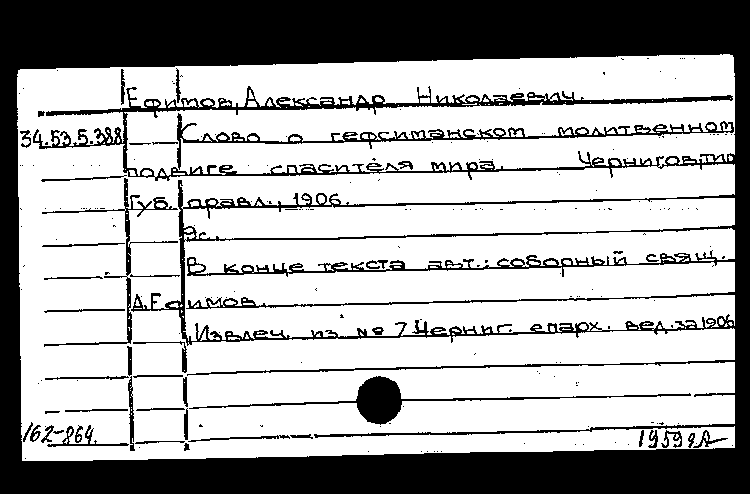 Ефимов, Александр Николаевич.
34.53.5.388 Слово о гефсиманском молитвенном
подвиге спасителя мира. Чернигов, тип.
Губ. правл., 1906.
9с.
В конце текста авт.: соборный свящ.
А.Ефимов.
Извлеч. из № 7 Черниг. епарх. вед. за 1906
162-864.